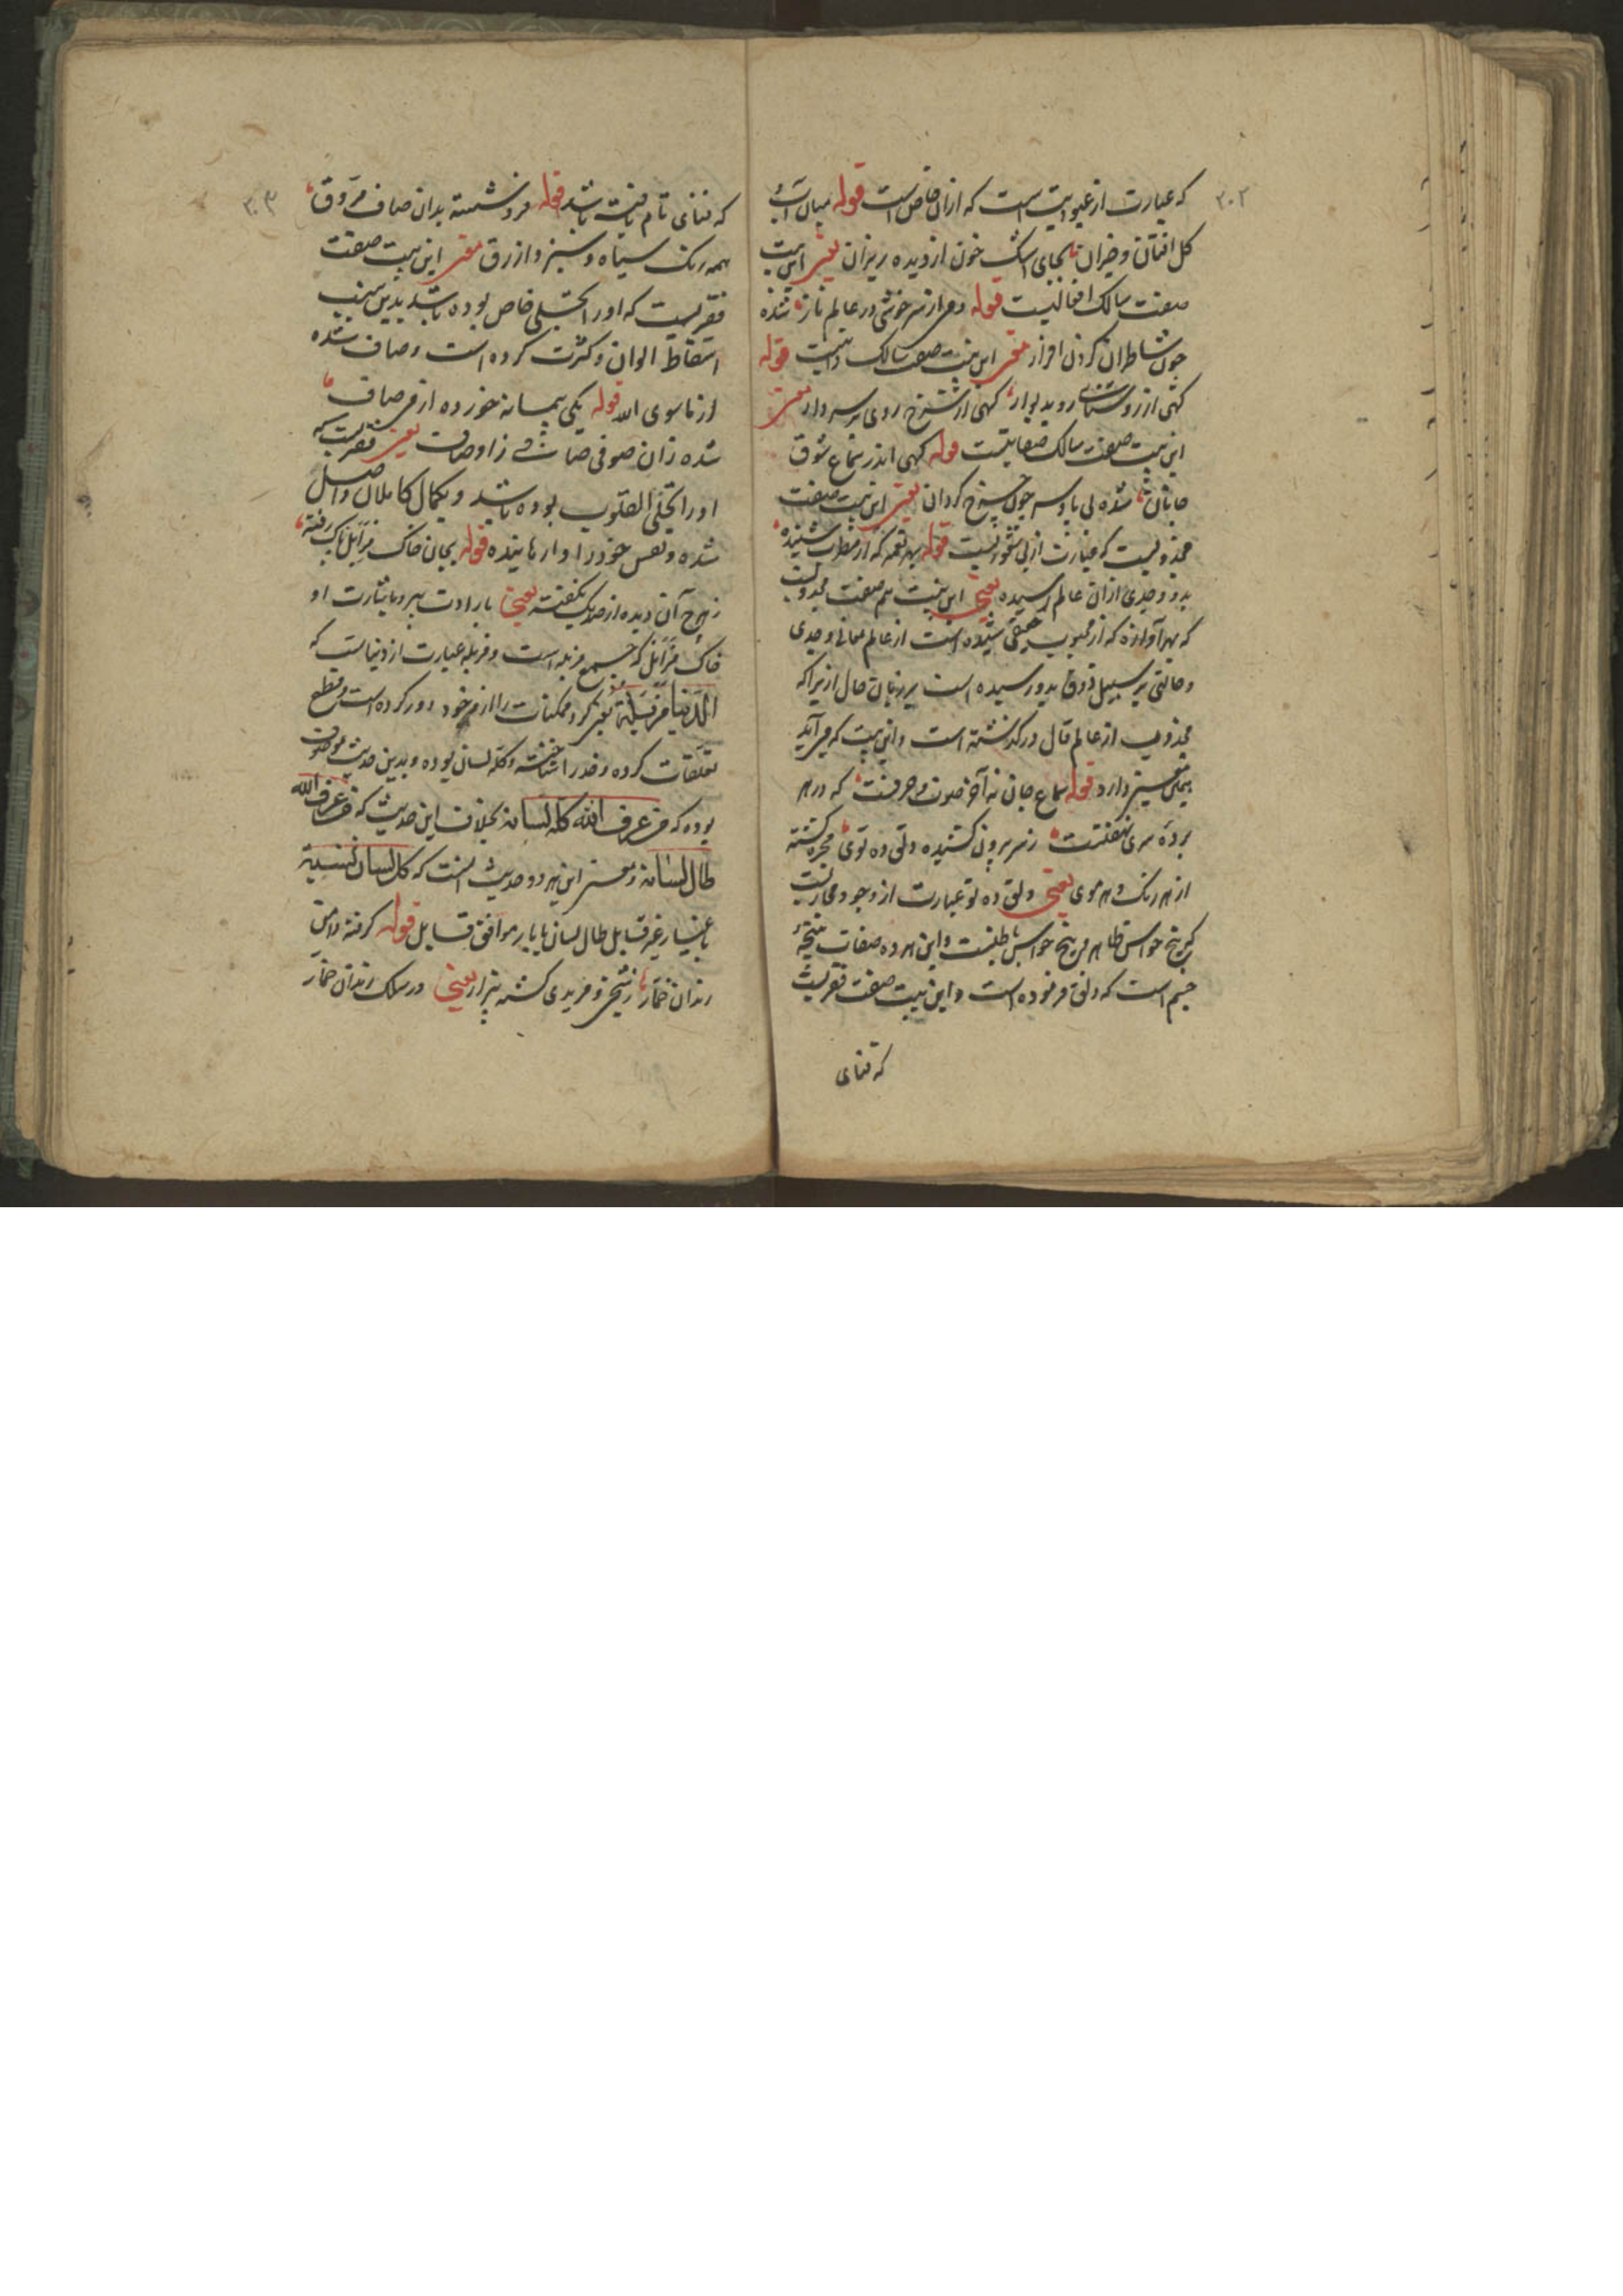 ۳۰۲
که عبارت از غیوبیت است که ازان خاص است قوله میان آب
کل افتان و خیزان بجای اشک خون از دیده ریزان یعنی این بیت
صفت سالک افعالیست قوله دمی از سرخوشی در عالم ناز شده
چون شاطران گردن افراز یعنی این بیت صفت سالک ذاتیست قوله
گهی از روسیاهی رو بدیوار گهی از سرخ روی بر سر دار یعنی
این بیت صفت سالک صفاتیست قوله گهی اندر سماع شوق
جانان شده بی پا و سر چون چرخ گردان یعنی این بیت صفت
مجذوبیست که عبارت از بی شعوریست قوله بهر نغمه که از مطرب شنیده
بدو وجدی ازان عالم رسیده یعنی این بیت هم صفت مجذوبیست
که بهر آوازه که از محبوب حقیقی شنیده است از عالم معانی وجدی
و حالتی بر سبیل ذوق بدو رسیده است بر زبان حال از نیرا که
مجذوب از عالم قال در گذشته است و این بیت که می آید
بیمعنی نیز دارد قوله سماع جان نه آخر صوت و حرفست که در هر
پرده سری نهفتست ز سر بیرون کشیده دلق ده توی مجرد گشته
از هر رنگ و هر موی یعنی دلق ده تو عبارت از وجود مجازیست
که پنج حواس ظاهر و پنج حواس باطنست و این هر ده صفات نتیجهٔ
جسم است که دلق فرموده است و این بیت صفت فقریست
که فنای
۳۰۳
که فنای تام یافته باشد قوله فرو شسته بدان صاف مروق
همه رنک سیاه و سبز و ازرق یعنی این بیت صفت
فقریست که او را تجلی خاص بوده باشد بدین سبب
اسقاط الوان و کثرت کرده است و صاف شده
از ماسوی الله قوله یکی پیمانه خورده از می صاف
شده زان صوفی صافی ز اوصاف یعنی فقریست که
او را تجلی القلوب بوده باشد و بکمال کاملان واصل
شده و نفس خود را وارهانیده قوله بجان خاک مزابل پاک رفته
ز هرچ آن دیده از صد یک نگفته یعنی بارادت پیر و باشارت او
خاک مزابل که جمع مزبله است و مزبله عبارت از دنیاست که
الدنیا مزبلة یعنی گرد ممکنات را از خود دور کرده است و قطع
تعلقات کرده و خدا را شناخته و کل لسان بوده و بدین حدیث موصوف
بوده که من عرف الله کل لسانه بخلاف این حدیث که من عرف الله
طال لسانه و معنی این هر دو حدیث آنست که کل لسان نسبت
باغیار غیر قابل طال لسان با یار موافق قابل قوله گرفته دامن
رندان خمار ز شیخی و مریدی گشته بیزار یعنی در سلک رندان خمار